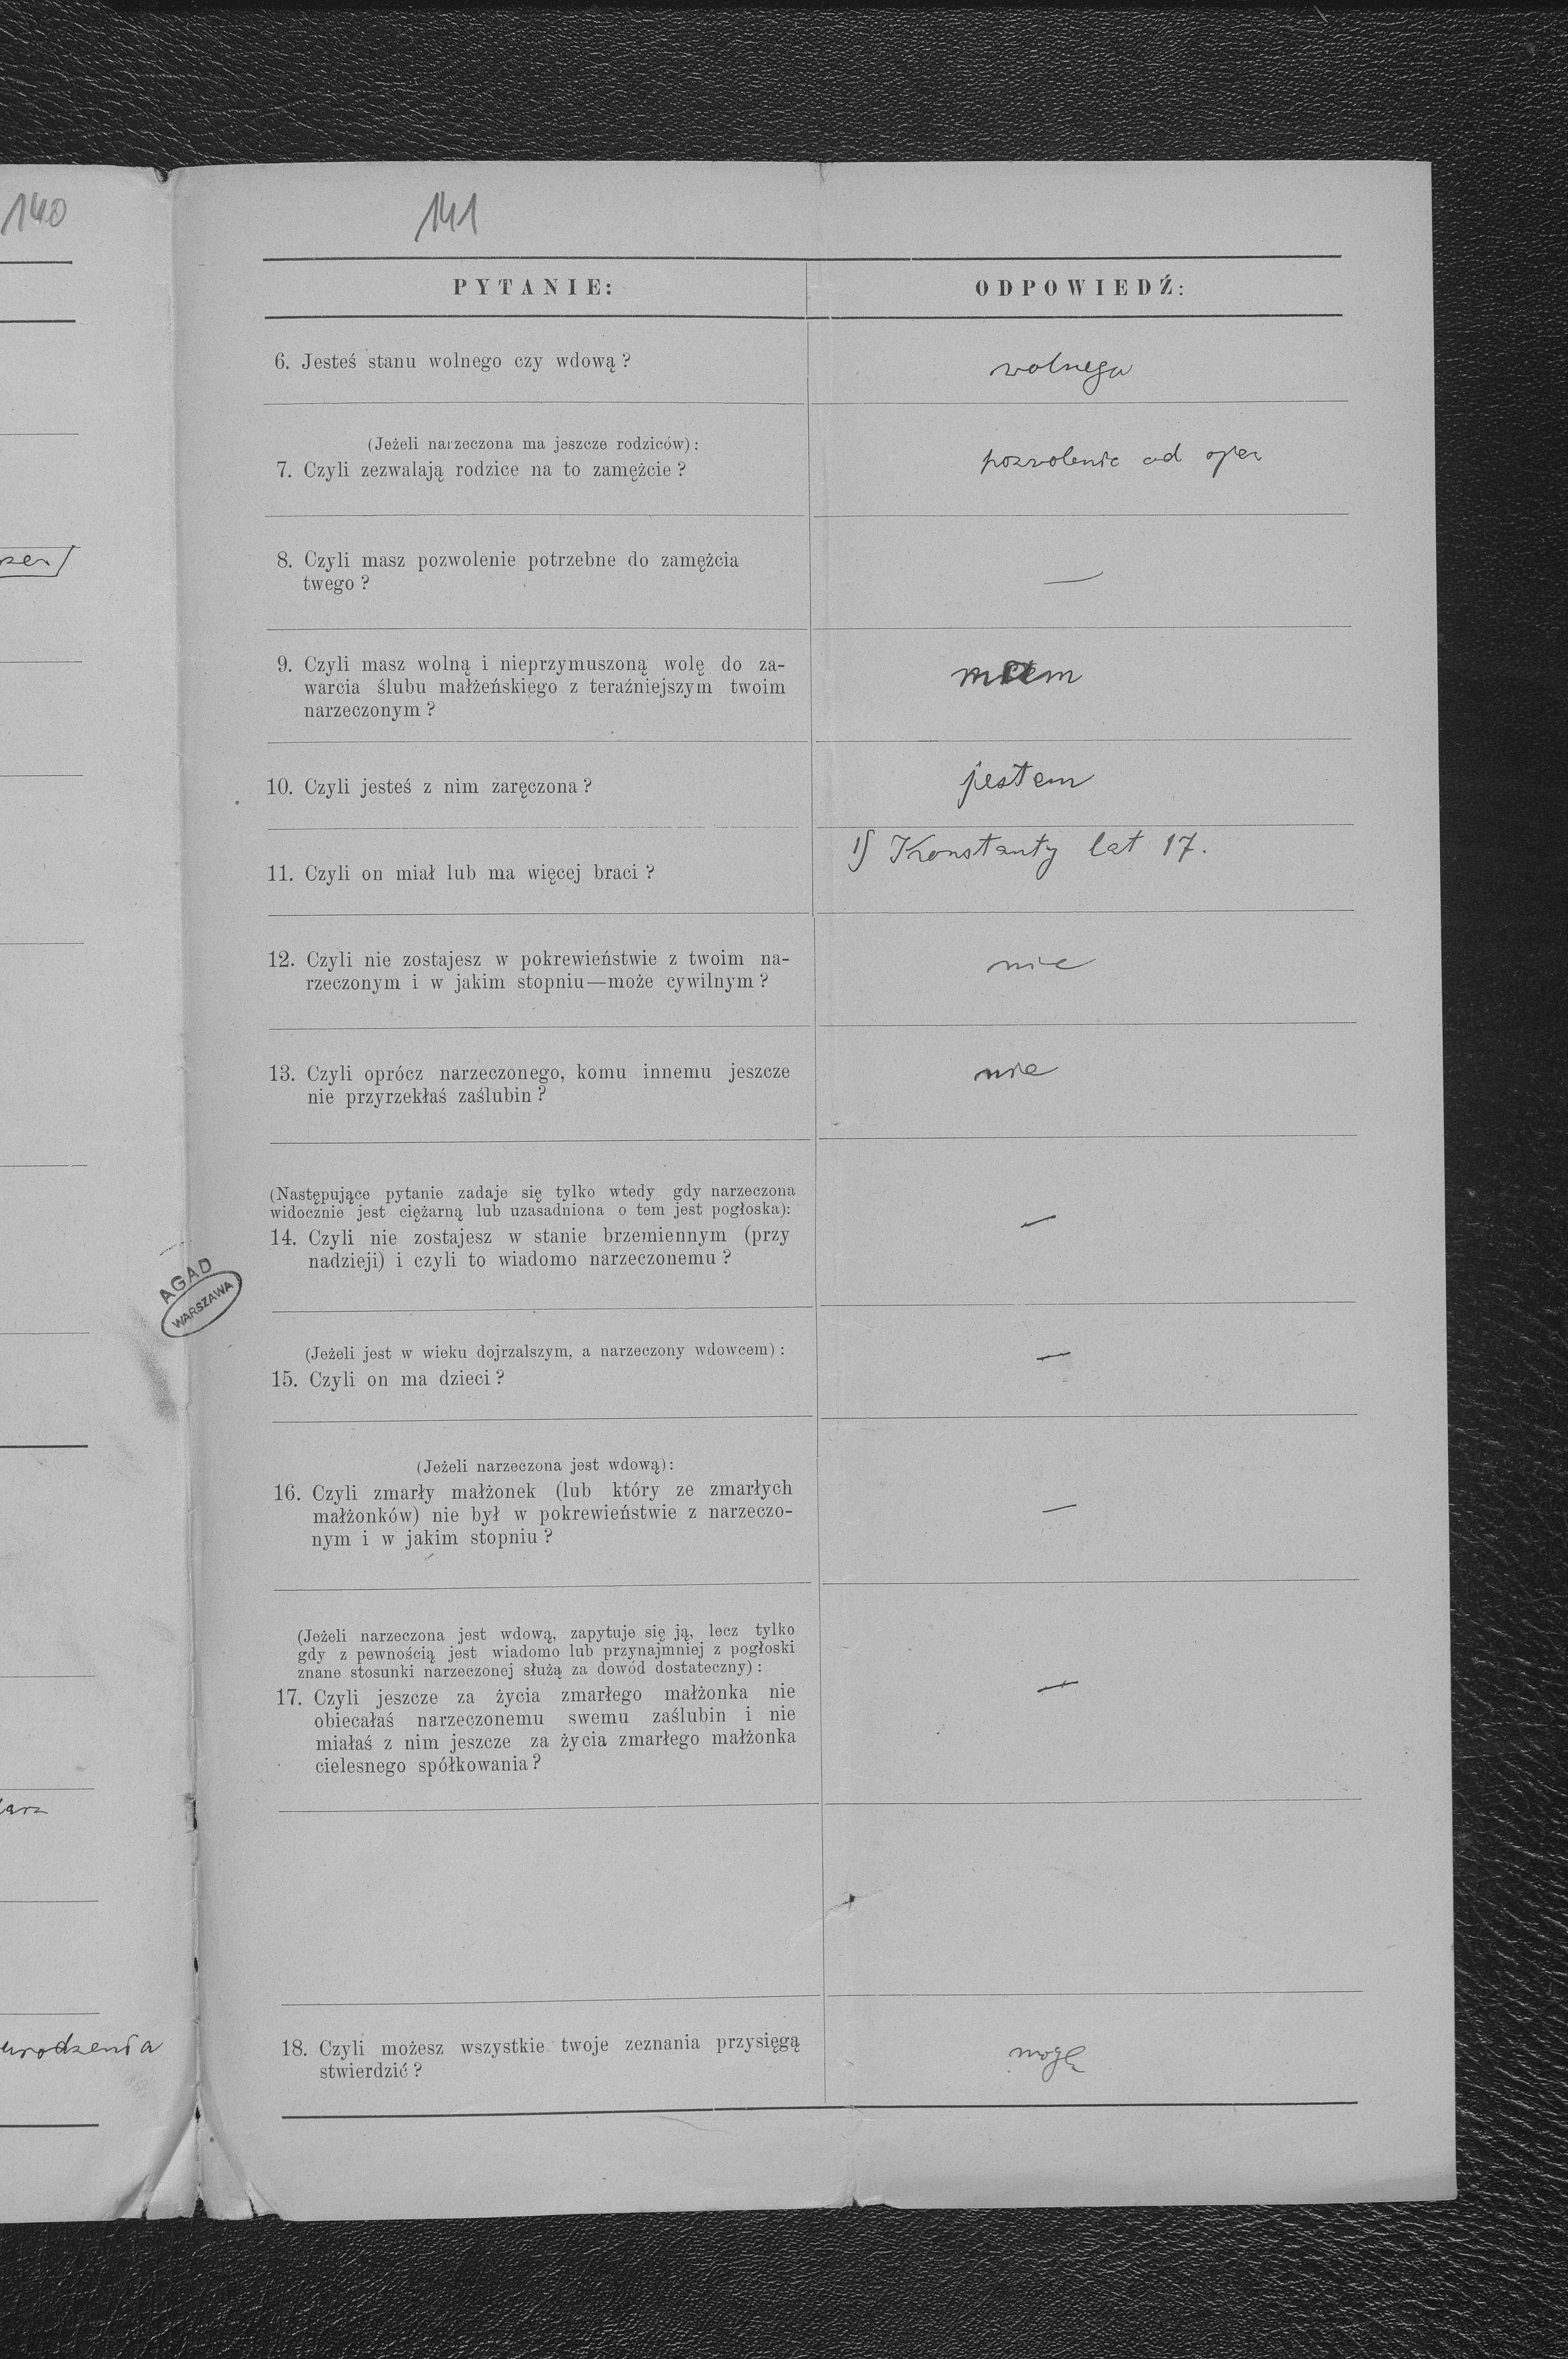 140
141
PYTANIE:
ODPOWIEDŹ:
6. Jesteś stanu wolnego czy wdową?
wolnego
(Jeżeli narzeczona ma jeszcze rodziców):
7. Czyli zezwalają rodzice na to zamęźcie?
pozwolenie od
8. Czyli masz pozwolenie potrzebne do zamężcia
twego?
—
9. Czyli masz wolną i nieprzymuszoną wolę do za-
warcia ślubu małżeńskiego z teraźniejszym twoim
narzeczonym?
mam
10. Czyli jesteś z nim zaręczona?
jestem
11. Czyli on miał lub ma więcej braci?
1) Konstanty lat 17.
12. Czyli nie zostajesz w pokrewieństwie z twoim na-
rzeczonym i w jakim stopniu—może cywilnym?
nie
13. Czyli oprócz narzeczonego, komu innemu jeszcze
nie przyrzekłaś zaślubin?
nie
(Następujące pytanie zadaje się tylko wtedy gdy narzeczona
widocznie jest ciężarną lub uzasadniona o tem jest pogłoska):
14. Czyli nie zostajesz w stanie brzemiennym (przy
nadzieji) i czyli to wiadomo narzeczonemu?
—
AGAD
WARSZAWA
(Jeżeli jest w wieku dojrzalszym, a narzeczony wdowcem):
15. Czyli on ma dzieci?
—
(Jeżeli narzeczona jest wdową):
16. Czyli zmarły małżonek (lub który ze zmarłych
małżonków) nie był w pokrewieństwie z narzeczo-
nym i w jakim stopniu?
—
(Jeżeli narzeczona jest wdową, zapytuje się ją, lecz tylko
gdy z pewnością jest wiadomo lub przynajmniej z pogłoski
znane stosunki narzeczonej służą za dowód dostateczny):
17. Czyli jeszcze za życia zmarłego małżonka nie
obiecałaś narzeczonemu swemu zaślubin i nie
miałaś z nim jeszcze za życia zmarłego małżonka
cielesnego spółkowania?
—
urodzenia
18. Czyli możesz wszystkie twoje zeznania przysięgą
stwierdzić?
mogę